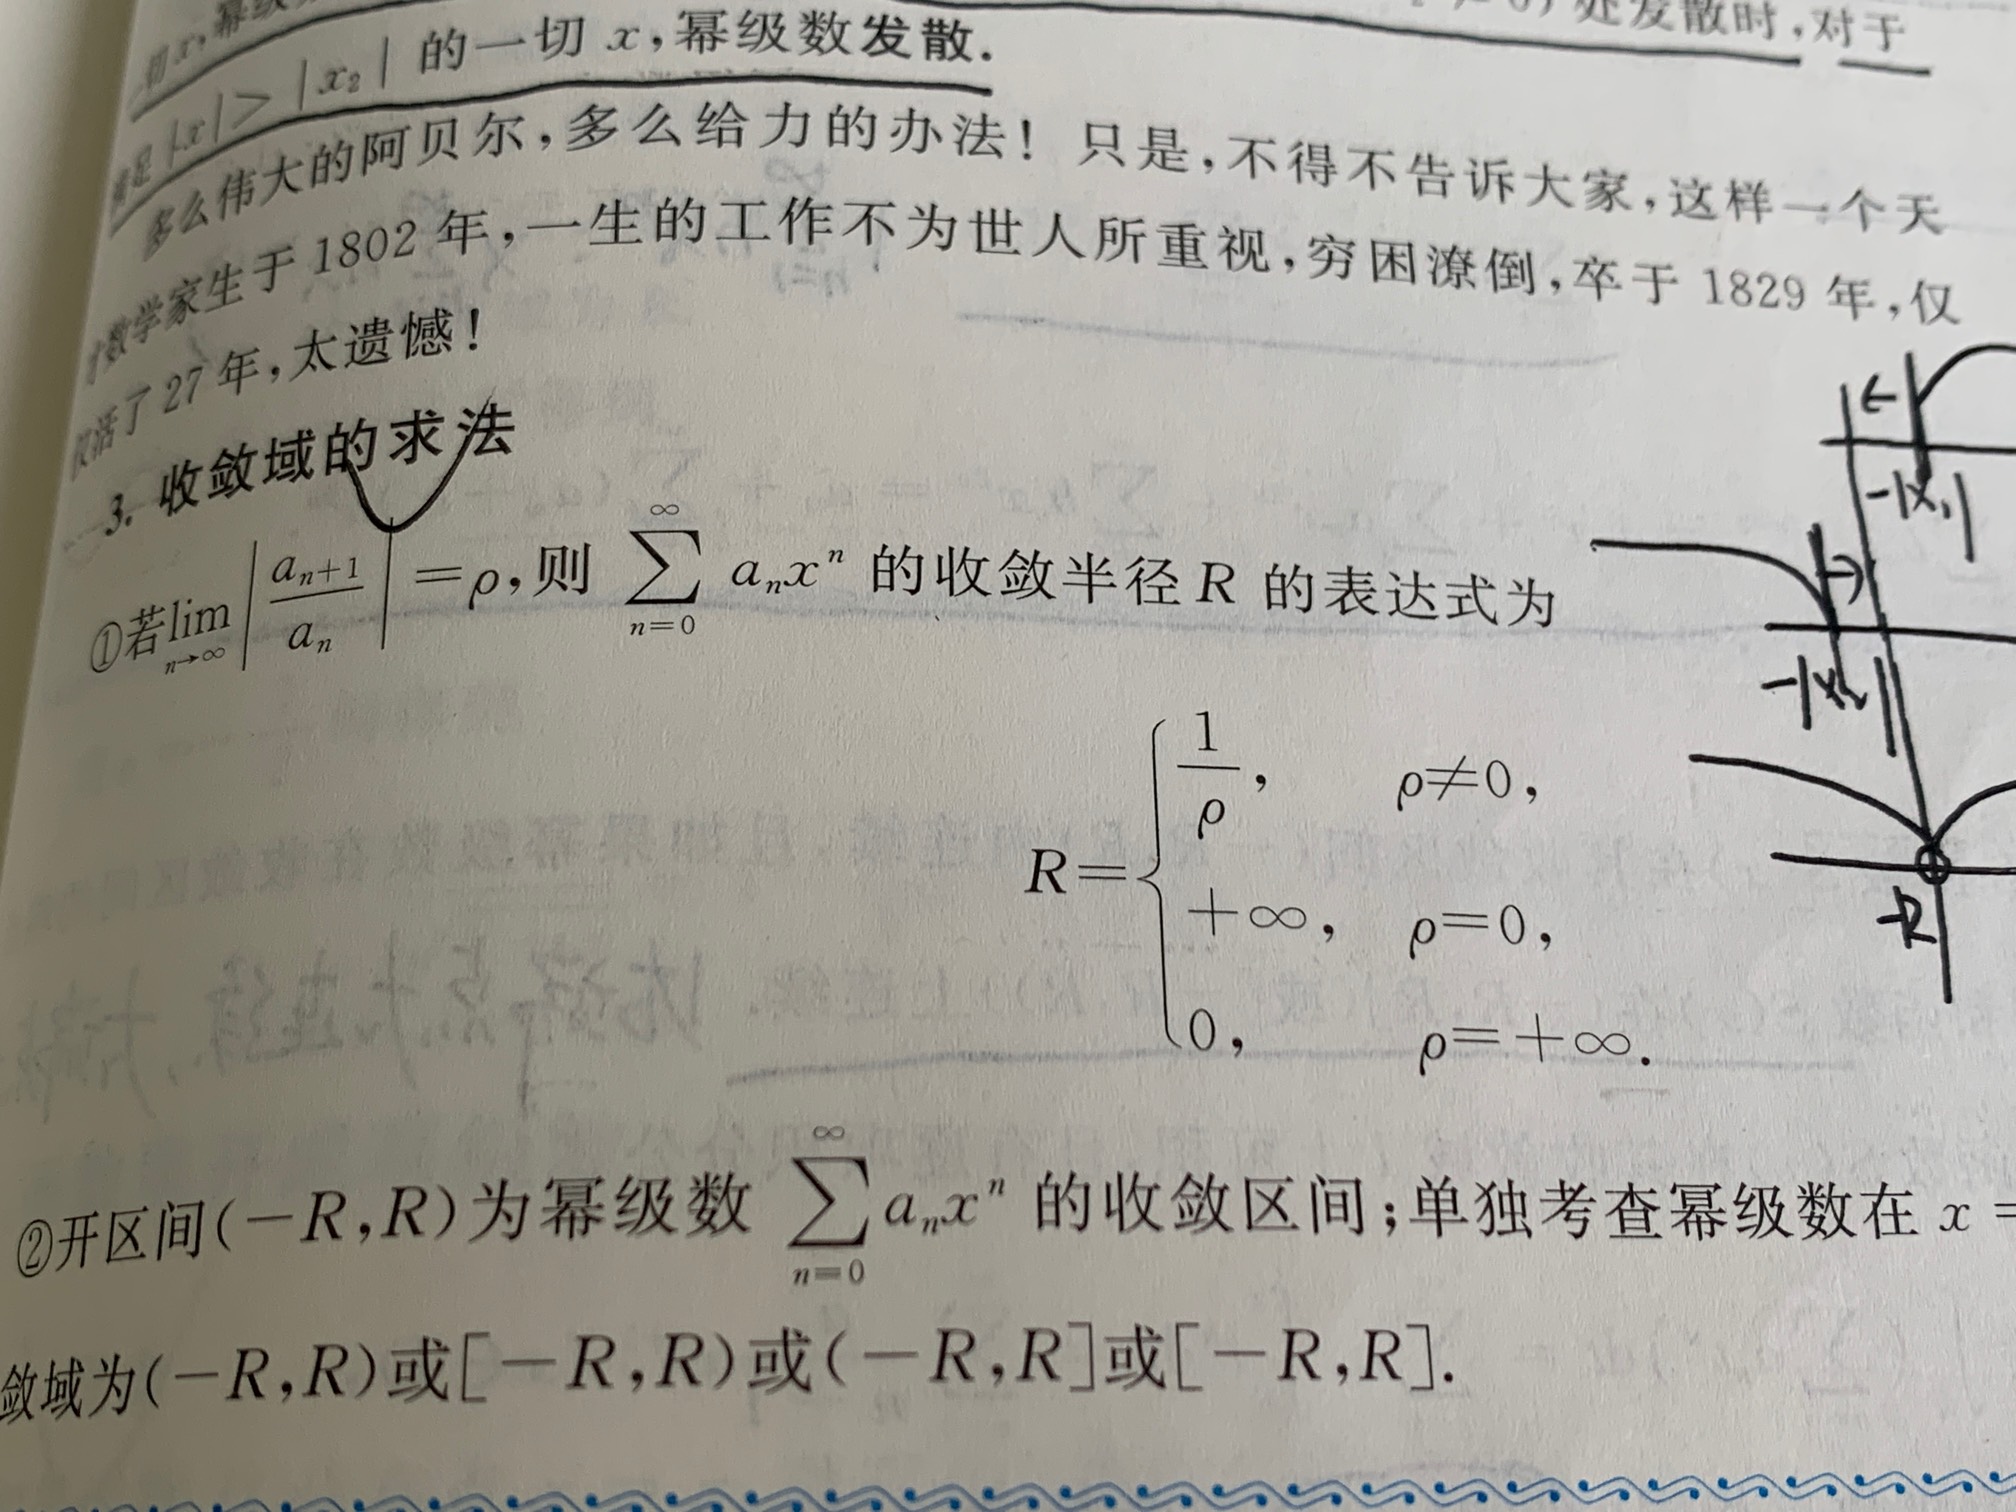 切x,幂级
≠0)处发散时,对于
满足|x|>|x₂|的一切x,幂级数发散.
多么伟大的阿贝尔,多么给力的办法! 只是,不得不告诉大家,这样一个天
才数学家生于1802年,一生的工作不为世人所重视,穷困潦倒,卒于1829年,仅
仅活了27年,太遗憾!
3. 收敛域的求法
①若lim_{n→∞}|a_{n+1}/a_n|=ρ,则 ∑_{n=0}^{∞} a_n x^n 的收敛半径R 的表达式为
R={ 1/ρ, ρ≠0,
+∞, ρ=0,
0, ρ=+∞.
②开区间(-R,R)为幂级数 ∑_{n=0}^{∞} a_n x^n 的收敛区间;单独考查幂级数在 x=
敛域为(-R,R)或[-R,R)或(-R,R]或[-R,R].
-|x₁|
-|x₂|
-R